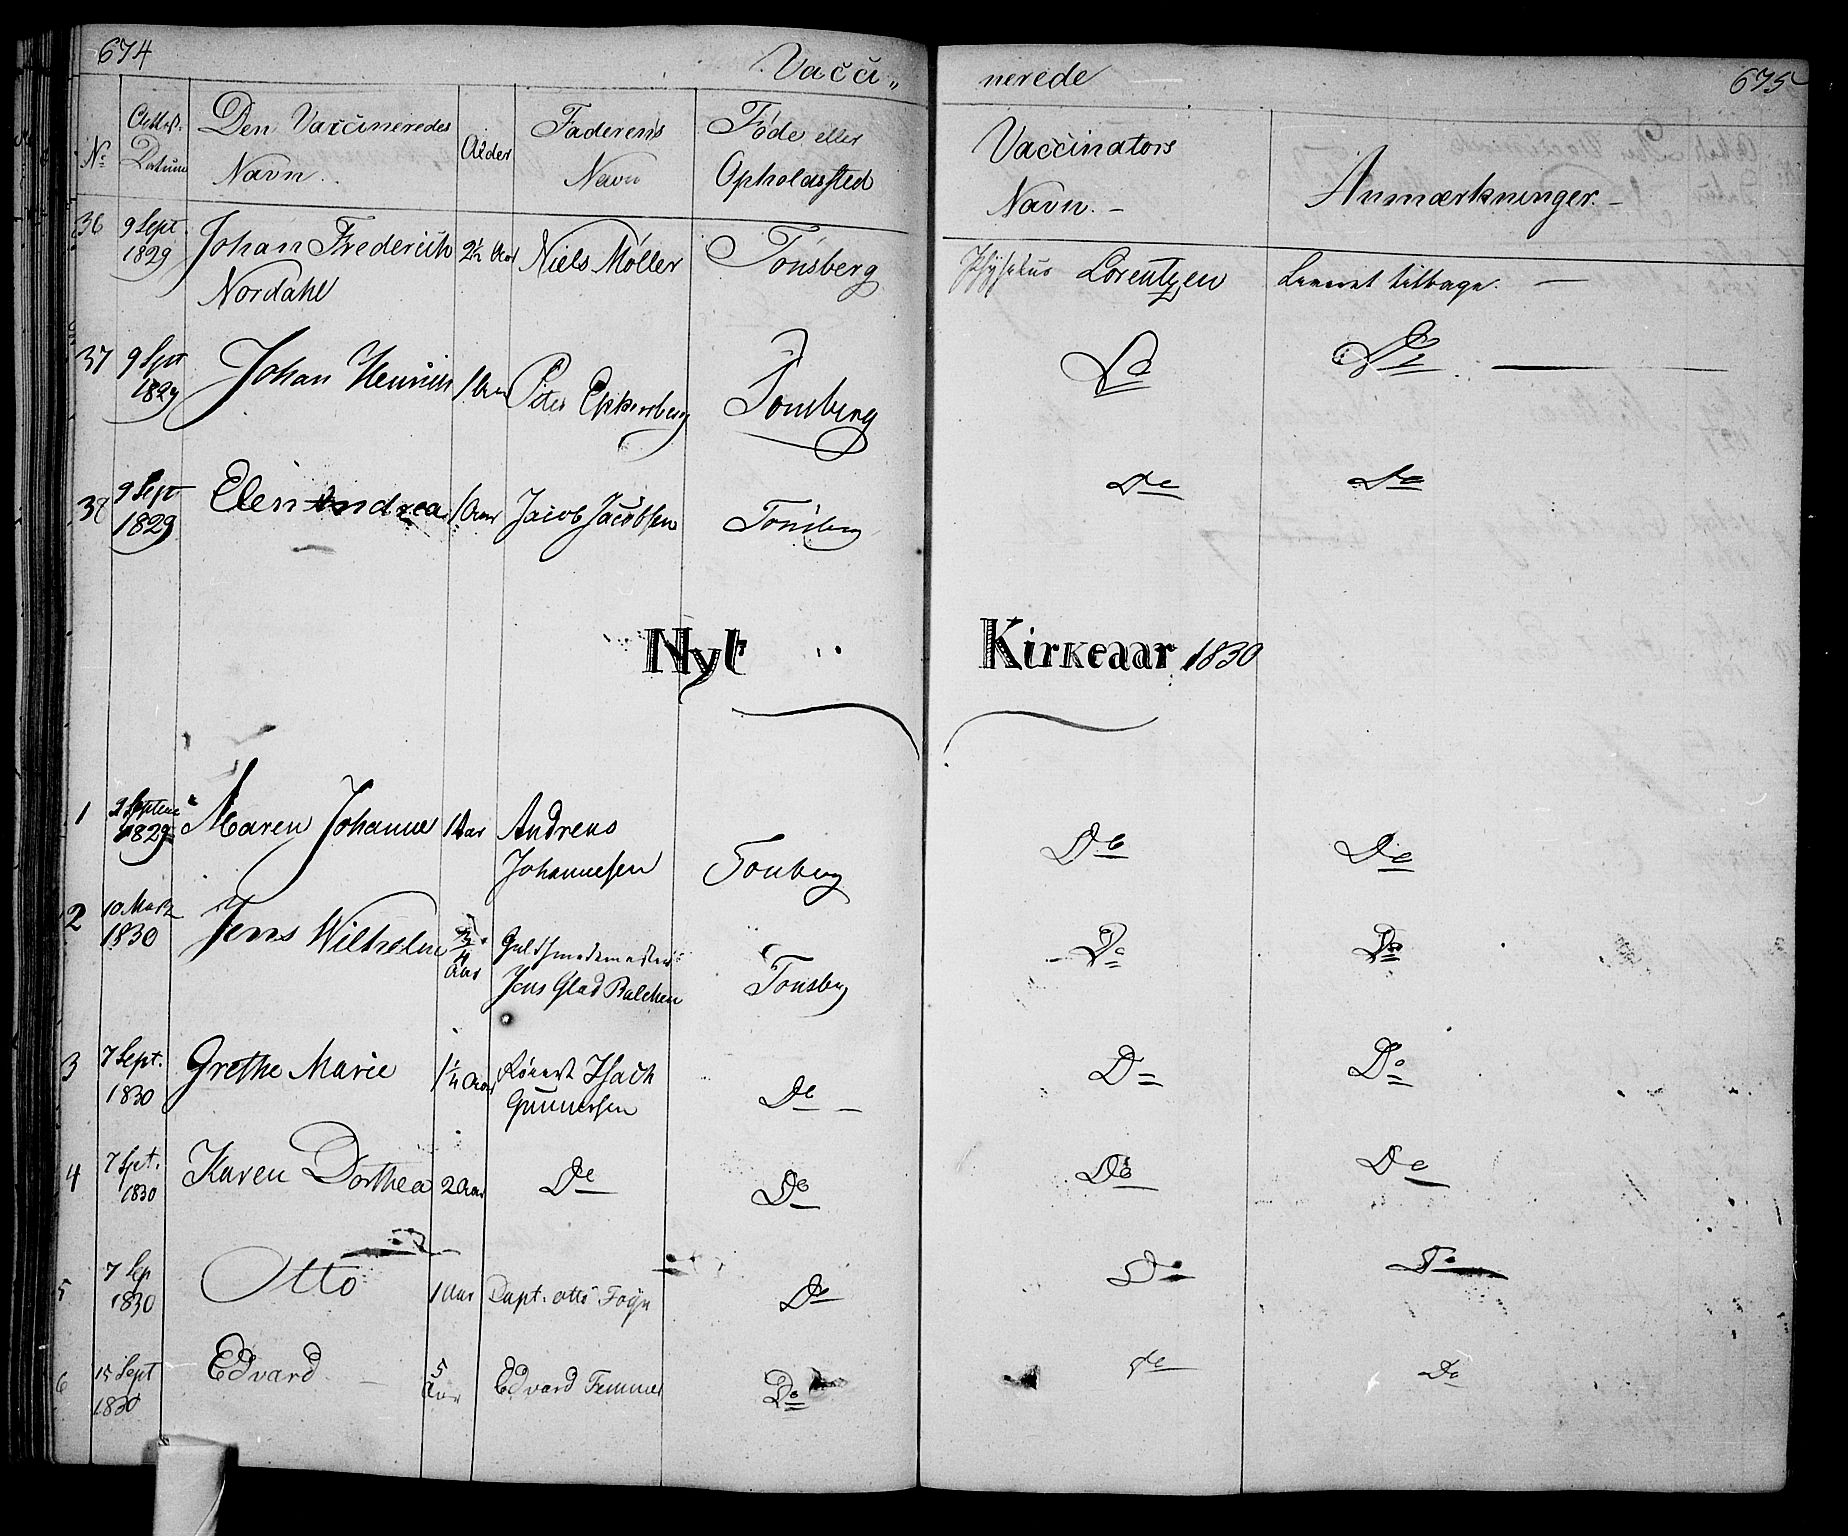 674 Vacci„ nerede 675
No Attest. Datum Den Vaccineredes Navn. Alder Faderens Navn Føde eller Opholdssted Vaccinators Navn. – Anmærkninger. –
36 9 Sept. 1829 Johan Frederich Nordahl 2½ Aar Niels Møller Tønsberg Physikus Lorentzen Leveret tilbage. —
37 9 Sept 1829 Johan Henrich 1 Aar Peter Tønsberg Do Do —
38 9 Sept 1829 Elen Andrea 1 Aar Jacob Jacobsen Tønsberg Do Do
Nyt Kirkeaar 1830
1 9 Septem 1829 Maren Johanne 1 Aar Andreas Johannesen Tonberg Do Do
2 10 Marz 1830 Jens Wilhelm 3/4 Aar Guldsmedmester Jens Glad Balchen Tonsberg Do Do
3 7 Sept. 1830 Grethe Marie 1½ Aar Isach Gunnersen Do – Do Do
4 7 Spt. 1830 Karen Dorthea 2 Aar Do Do Do Do
5 7 Sep 1830 Otto 1 Aar Capt. Otto Foyn Do Do Do
6 15 Sept 1830 Edvard – 5 Aar Edvard Do Do Do